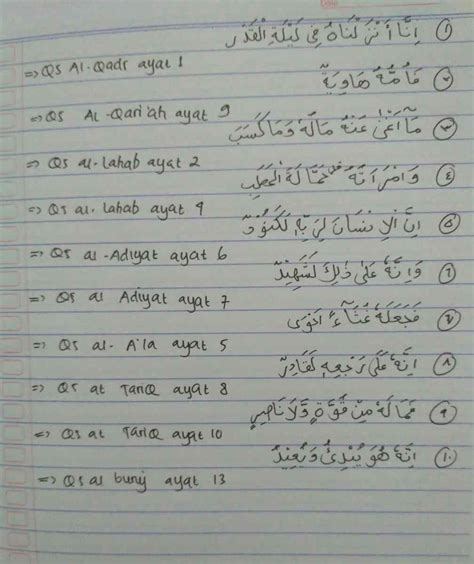 Date
① اِنَّا أَنْزَلْنَاهُ فِى لَيْلَةِ الْقَدْرِ
=> QS Al-Qadr ayat 1
② فَأُمُّهُ هَاوِيَةٌ
=> QS Al-Qari'ah ayat 9
③ مَآ اَغْنٰى عَنْهُ مَالُهُ وَمَا كَسَبَ
=> QS al-lahab ayat 2
④ وَامْرَاَتُهُ حَمَّالَةَ الْحَطَبِ
=> QS al-lahab ayat 4
⑤ اِنَّ الْاِنْسَانَ لِرَبِّهٖ لَكَنُوْدٌ
=> QS al-Adiyat ayat 6
⑥ وَاِنَّهُ عَلَى ذٰلِكَ لَشَهِيْدٌ
=> QS al Adiyat ayat 7
⑦ فَجَعَلَهُ غُثَآءً اَحْوَى
=> QS al-A'la ayat 5
⑧ اِنَّهُ عَلَى رَجْعِهِ لَقَادِرٌ
=> QS at Tariq ayat 8
⑨ فَمَالَهُ مِنْ قُوَّةٍ وَّلَا نَاصِرٍ
=> QS at Tariq ayat 10
⑩ اِنَّهُ هُوَ يُبْدِئُ وَيُعِيْدُ
=> QS al buruj ayat 13